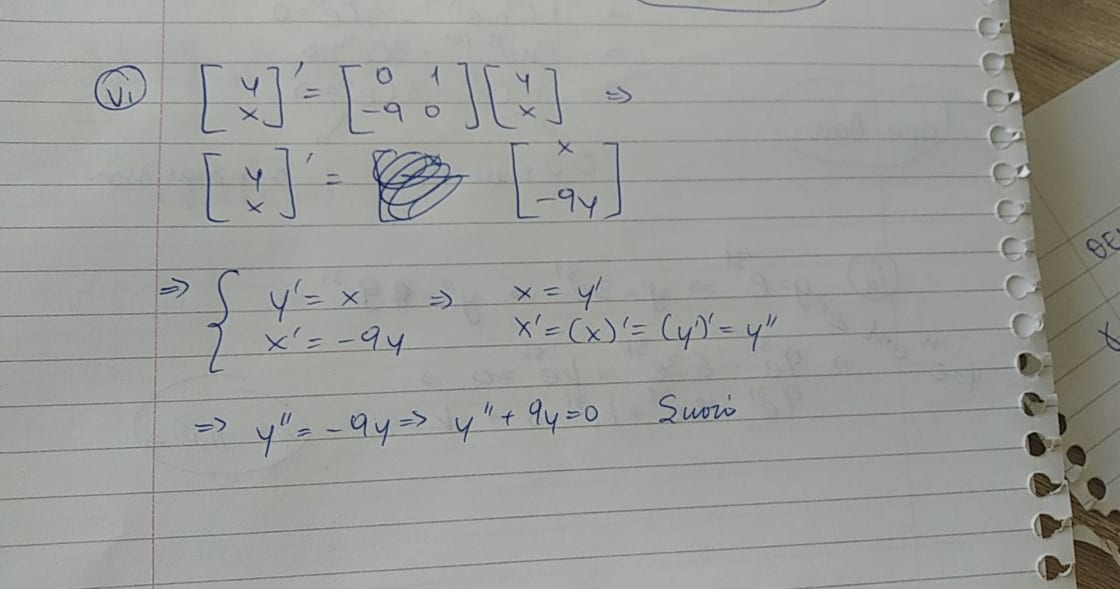 (vi) [y x]' = [0 1 -9 0] [y x] ⇒
[y x]' = [x -9y]
⇒ { y' = x ⇒ x = y'
x' = -9y x' = (x)' = (y')' = y''
⇒ y'' = -9y ⇒ y'' + 9y = 0
ΘΕ